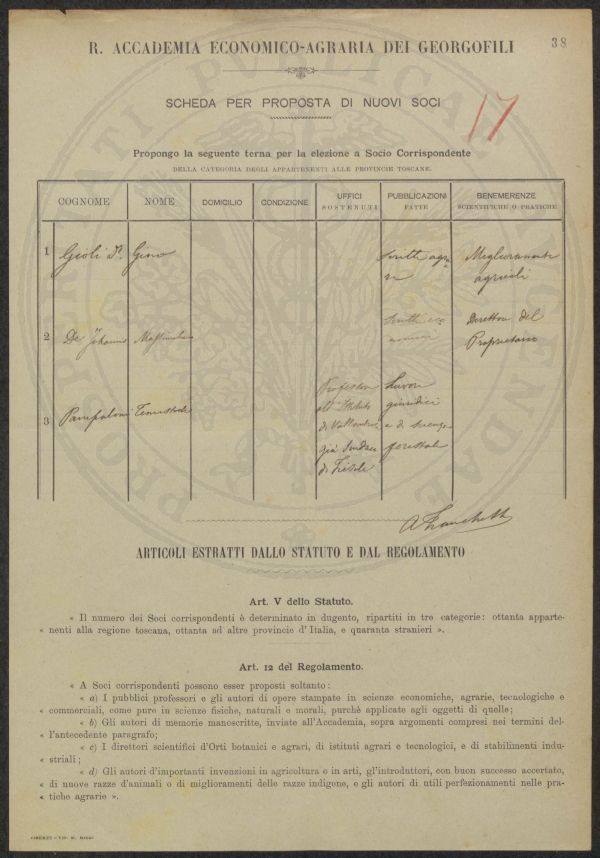 38
R. ACCADEMIA ECONOMICO-AGRARIA DEI GEORGOFILI
SCHEDA PER PROPOSTA DI NUOVI SOCI
17
Propongo la seguente terna per la elezione a Socio Corrispondente
DELLA CATEGORIA DEGLI APPARTENENTI ALLE PROVINCIE TOSCANE.
COGNOME NOME DOMICILIO CONDIZIONE UFFICI SOSTENUTI PUBBLICAZIONI FATTE BENEMERENZE SCIENTIFICHE O PRATICHE
1 Gioli Gino Scritti Miglioramenti
agricoli
2 De Johannis Scritti Direttore del
Proprietario
3 Pampaloni Professore Lavori
all' Istituto giuridici
di Vallombrosa e di scienza
già Sindaco forestale
di Fiesole
A Franchetti
ARTICOLI ESTRATTI DALLO STATUTO E DAL REGOLAMENTO
Art. V dello Statuto.
« Il numero dei Soci corrispondenti è determinato in dugento, ripartiti in tre categorie: ottanta apparte-
« nenti alla regione toscana, ottanta ad altre provincie d'Italia, e quaranta stranieri ».
Art. 12 del Regolamento.
« A Soci corrispondenti possono esser proposti soltanto:
« a) I pubblici professori e gli autori di opere stampate in scienze economiche, agrarie, tecnologiche e
« commerciali, come pure in scienze fisiche, naturali e morali, purchè applicate agli oggetti di quelle;
« b) Gli autori di memorie manoscritte, inviate all'Accademia, sopra argomenti compresi nei termini del-
« l'antecedente paragrafo;
« c) I direttori scientifici d'Orti botanici e agrari, di istituti agrari e tecnologici, e di stabilimenti indu-
« striali;
« d) Gli autori d'importanti invenzioni in agricoltura o in arti, gl'introduttori, con buon successo accertato,
« di nuove razze d'animali o di miglioramenti delle razze indigene, e gli autori di utili perfezionamenti nelle pra-
« tiche agrarie ».